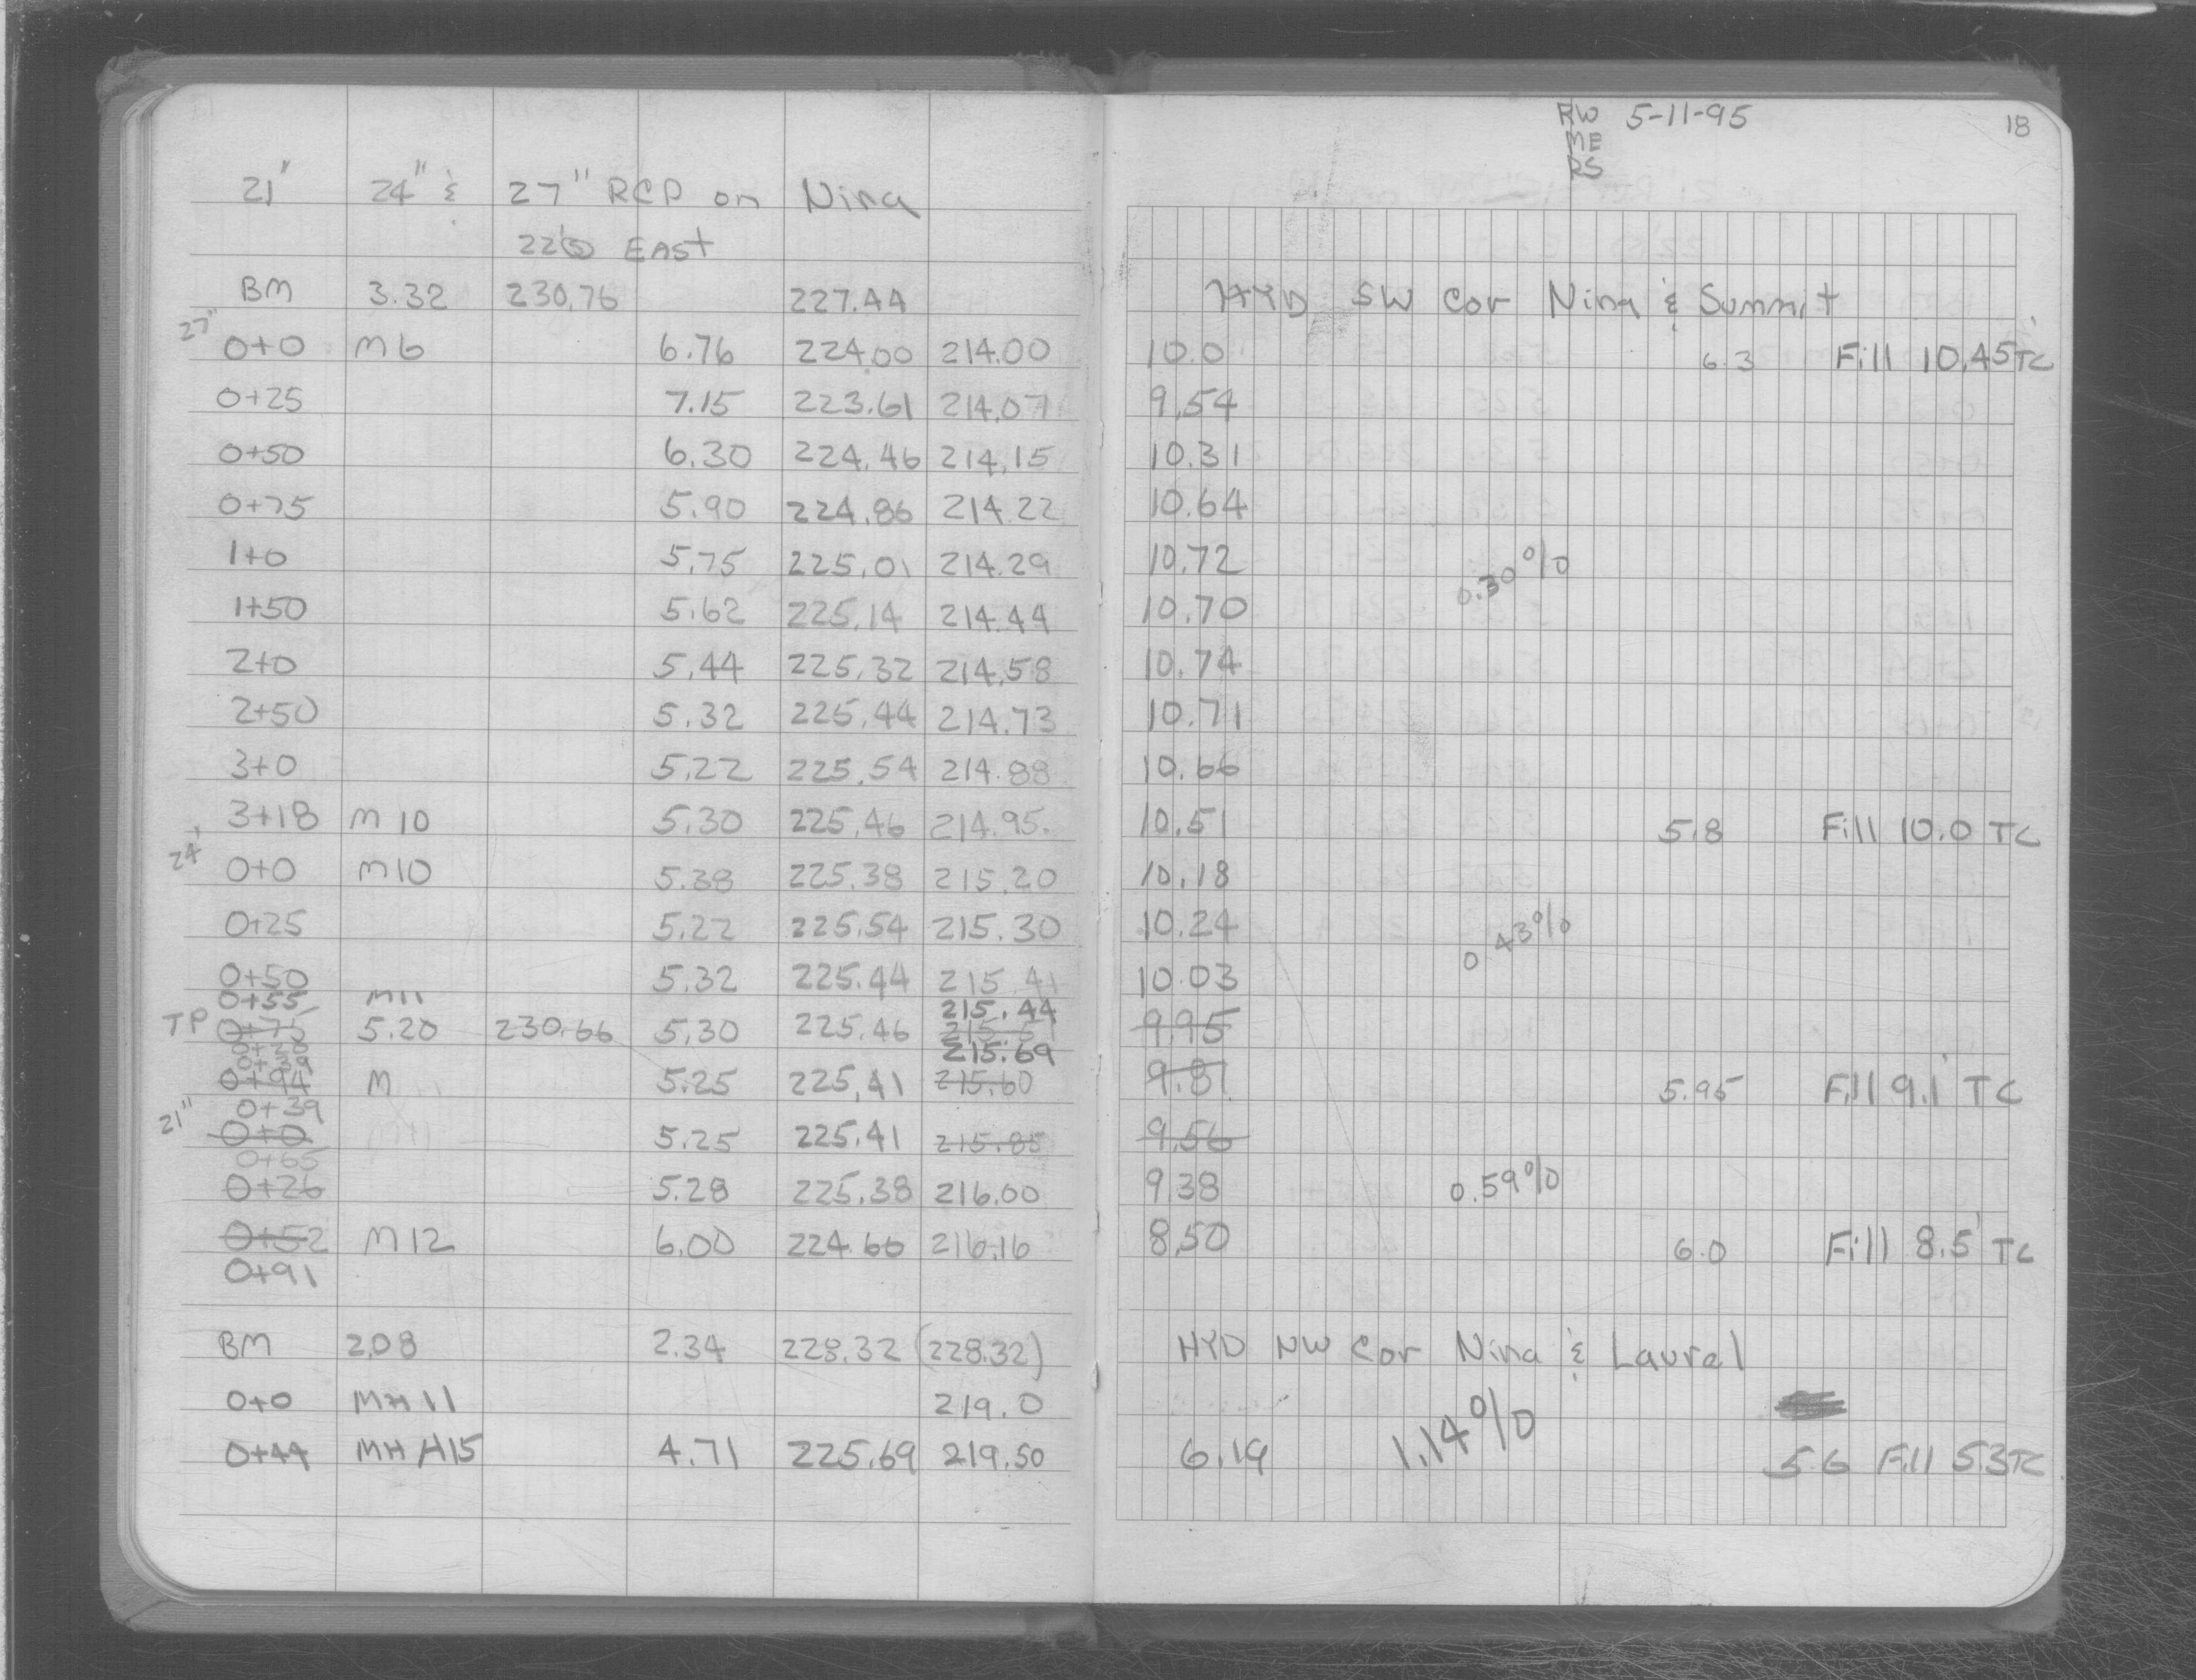 RW 5-11-95 18
ME
RS
21" 24" & 27" RCP on Nina
EAST
BM 3.32 230.76 227.44 HYD SW Cor Nina & Summit
27" 0+0 M6 6.76 224.00 214.00 10.0 6.3 Fill 10.45' TC
0+25 7.15 223.61 214.07 9.54
0+50 6.30 224.46 214.15 10.31
0+75 5.90 224.86 214.22 10.64
1+0 5.75 225.01 214.29 10.72 0.30%
1+50 5.62 225.14 214.44 10.70
2+0 5.44 225.32 214.58 10.74
2+50 5.32 225.44 214.73 10.71
3+0 5.22 225.54 214.88 10.66
3+18 M10 5.30 225.46 214.95 10.51 5.8 Fill 10.0 TC
24" 0+0 M10 5.38 225.38 215.20 10.18
0+25 5.22 225.54 215.30 10.24 0.43%
0+50 5.32 225.44 215.41 10.03
0+55 M11 215.44
TP 0+75 5.20 230.66 5.30 225.46 9.95
0+39 215.69
0+94 M 5.25 225.41 215.60 9.81 5.95 Fill 9.1' TC
0+39
21" 0+0 5.25 225.41 215.85 9.56
0+65
0+26 5.28 225.38 216.00 9.38 0.59%
0+52 M12 6.00 224.66 216.16 8.50 6.0 Fill 8.5' TC
0+91
BM 2.08 2.34 228.32 (228.32) HYD NW Cor Nina & Laurel
0+0 MH 11 219.0
0+44 MH A15 4.71 225.69 219.50 6.19 1.14% 5.6 Fill 5.3 TC